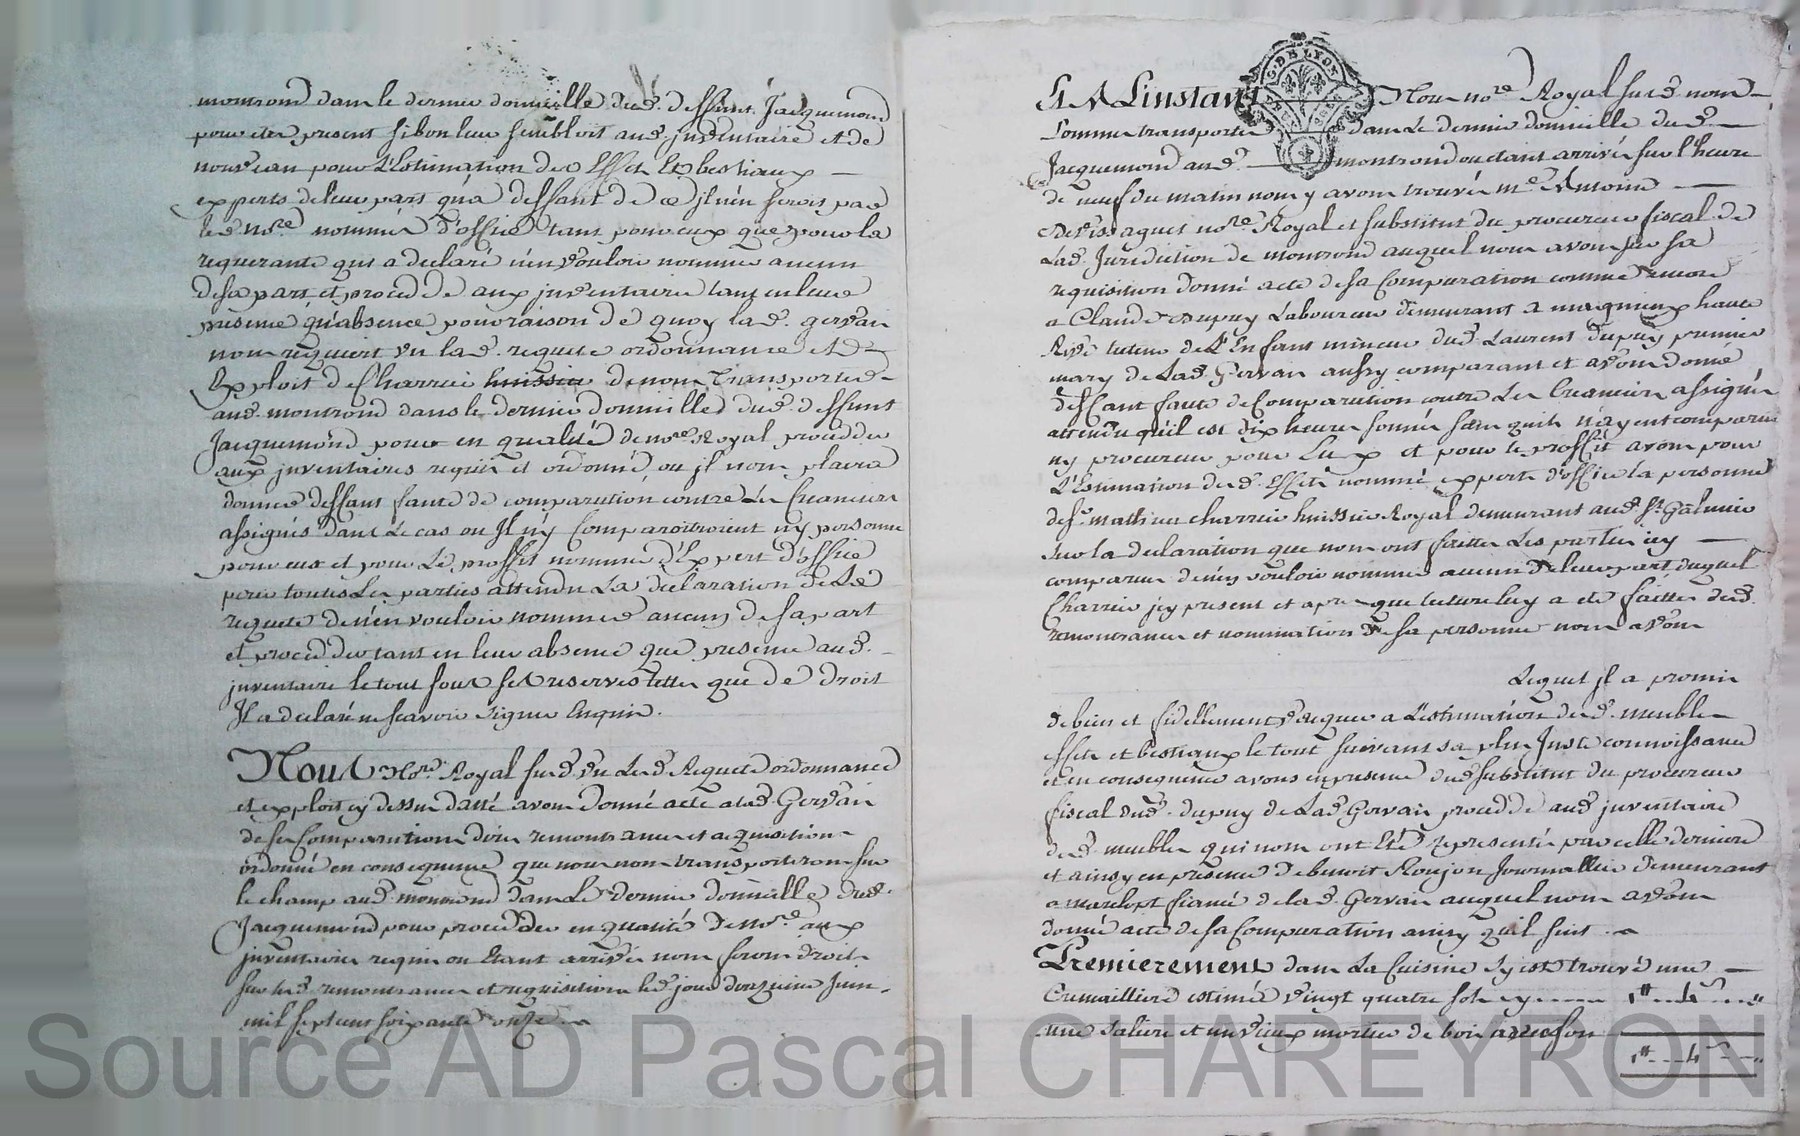 montrond dans le dernier domicille dud. deffunt Jacquemond
pour etre present si bon leur sembloit aud. inventaire et de
nouveau pour L'Estimation des Effets Et bestiaux
experts de leur part qu'a deffaut de ce jl n'en serois par
led. nore. nommé d'office tant pour eux que pour la
requerante qui a declaré n'en vouloir nommer aucun
de sa part et procedé aux jnventaire tant en leur
presence qu'absence pour raison de quoy lad. gervais
nous requiert vu lad. requete ordonnance et
Exploit de Charrein huissier de nous transporter
aud. montrond dans le dernier domicille dud. deffunt
Jacquemond pour en qualité de nore. Royal proceder
aux jnventaires requis et ordonné ou jl nous plaira
donner deffaut faute de comparution contre Les Creanciers
assignés dans Le cas ou Jl n'y Comparoitroient ny personne
pour eux et pour Le proffit nommer d'Expert d'office
pour toutes Les parties attendu La declaration de La
requete de n'en vouloir nommer aucun de sa part
et proceder tant en leur absence que presence aud.
jnventaire le tout sous ses reserves telles que de droit
Jl a declaré ne scavoir signer Enquis.
Nous Nore. Royal susd. vu Lesd. Requete ordonnance
et exploit cy dessus datté avons donné acte a lad. Gervais
de sa Comparution dire remontrances et requisitions
ordonné en consequence que nous nous transporterons sur
le champ aud. montrond dans Le dernier domicille dud.
Jacquemond pour proceder en qualité de nore. aux
jnventaires requis ou Etant arrivés nous ferons droit
sur les d. remontrances et requisitions led. jour douzieme Juin
mil sept cent soixante onze
Et A Linstant Nous nore. Royal susd. nous
sommes transporté dans Le dernier domicille dud.
Jacquemond aud. montrond ou etant arrivés sur l'heure
de neuf du matin nous y avons trouvés me. Antoine
Devissaguet nore. Royal et substitut du procureur fiscal de
Lad. Juridiction de montrond auquel nous avons sur sa
requisition donné acte de sa Comparution comme encore
a Claude Dupuy Laboureur demeurant a magnieux haute
Rive tuteur de L'Enfant mineur dud. Laurent Dupuy premier
mary de Lad. Gervais aussy comparant et avons donné
deffaut faute de Comparution contre Les Creanciers assignés
attendu qu'il est dix heures sonnés sans quils n'ayent comparus
ny procureur pour Eux et pour le proffit avons pour
L'Estimation desd. Effets nommé experts d'office la personne
de sr. mathieu charrein huissier Royal demeurant aud. St. Galmier
sur la declaration que nous ont faittes Les parties icy
comparues de n'en vouloir nommer aucun de leur part duquel
Charrein jcy present et apres que lecture luy a eté faitte desd.
remontrances et nomination de sa personne nous avons
Lequel jl a promis
de bien et fidellement vacquer a L'estimation desd. meubles
effets et bestiaux le tout suivant sa plus Juste connoissance
et en consequence avons en presence dud. substitut du procureur
fiscal dud. dupuy de Lad. Gervais procedé aud. jnventaire
desd. meubles qui nous ont Eté representé par celle derniere
et ainsy en presence de benoit Roujon Journallier demeurant
a marclopt fiancé de lad. Gervais auquel nous avons
donné acte de sa Comparution ainsy qu'il suit
Premierement dans La Cuisine s'y est trouvé une
Cremailliere estimée vingt quatre sols cy 1tt 4s "
une saliere et un vieux mortier de bois avec son
1tt 4s "
Source AD Pascal CHAREYRON